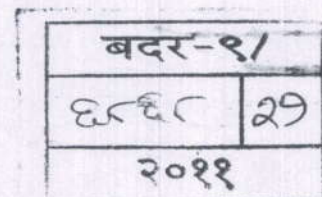 बदर-९/
६८६८ २७
२०११